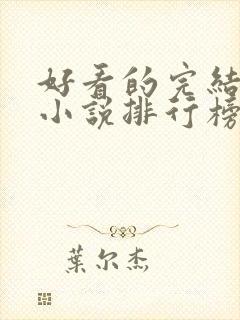 好看的完結
小說排行榜
葉尔杰